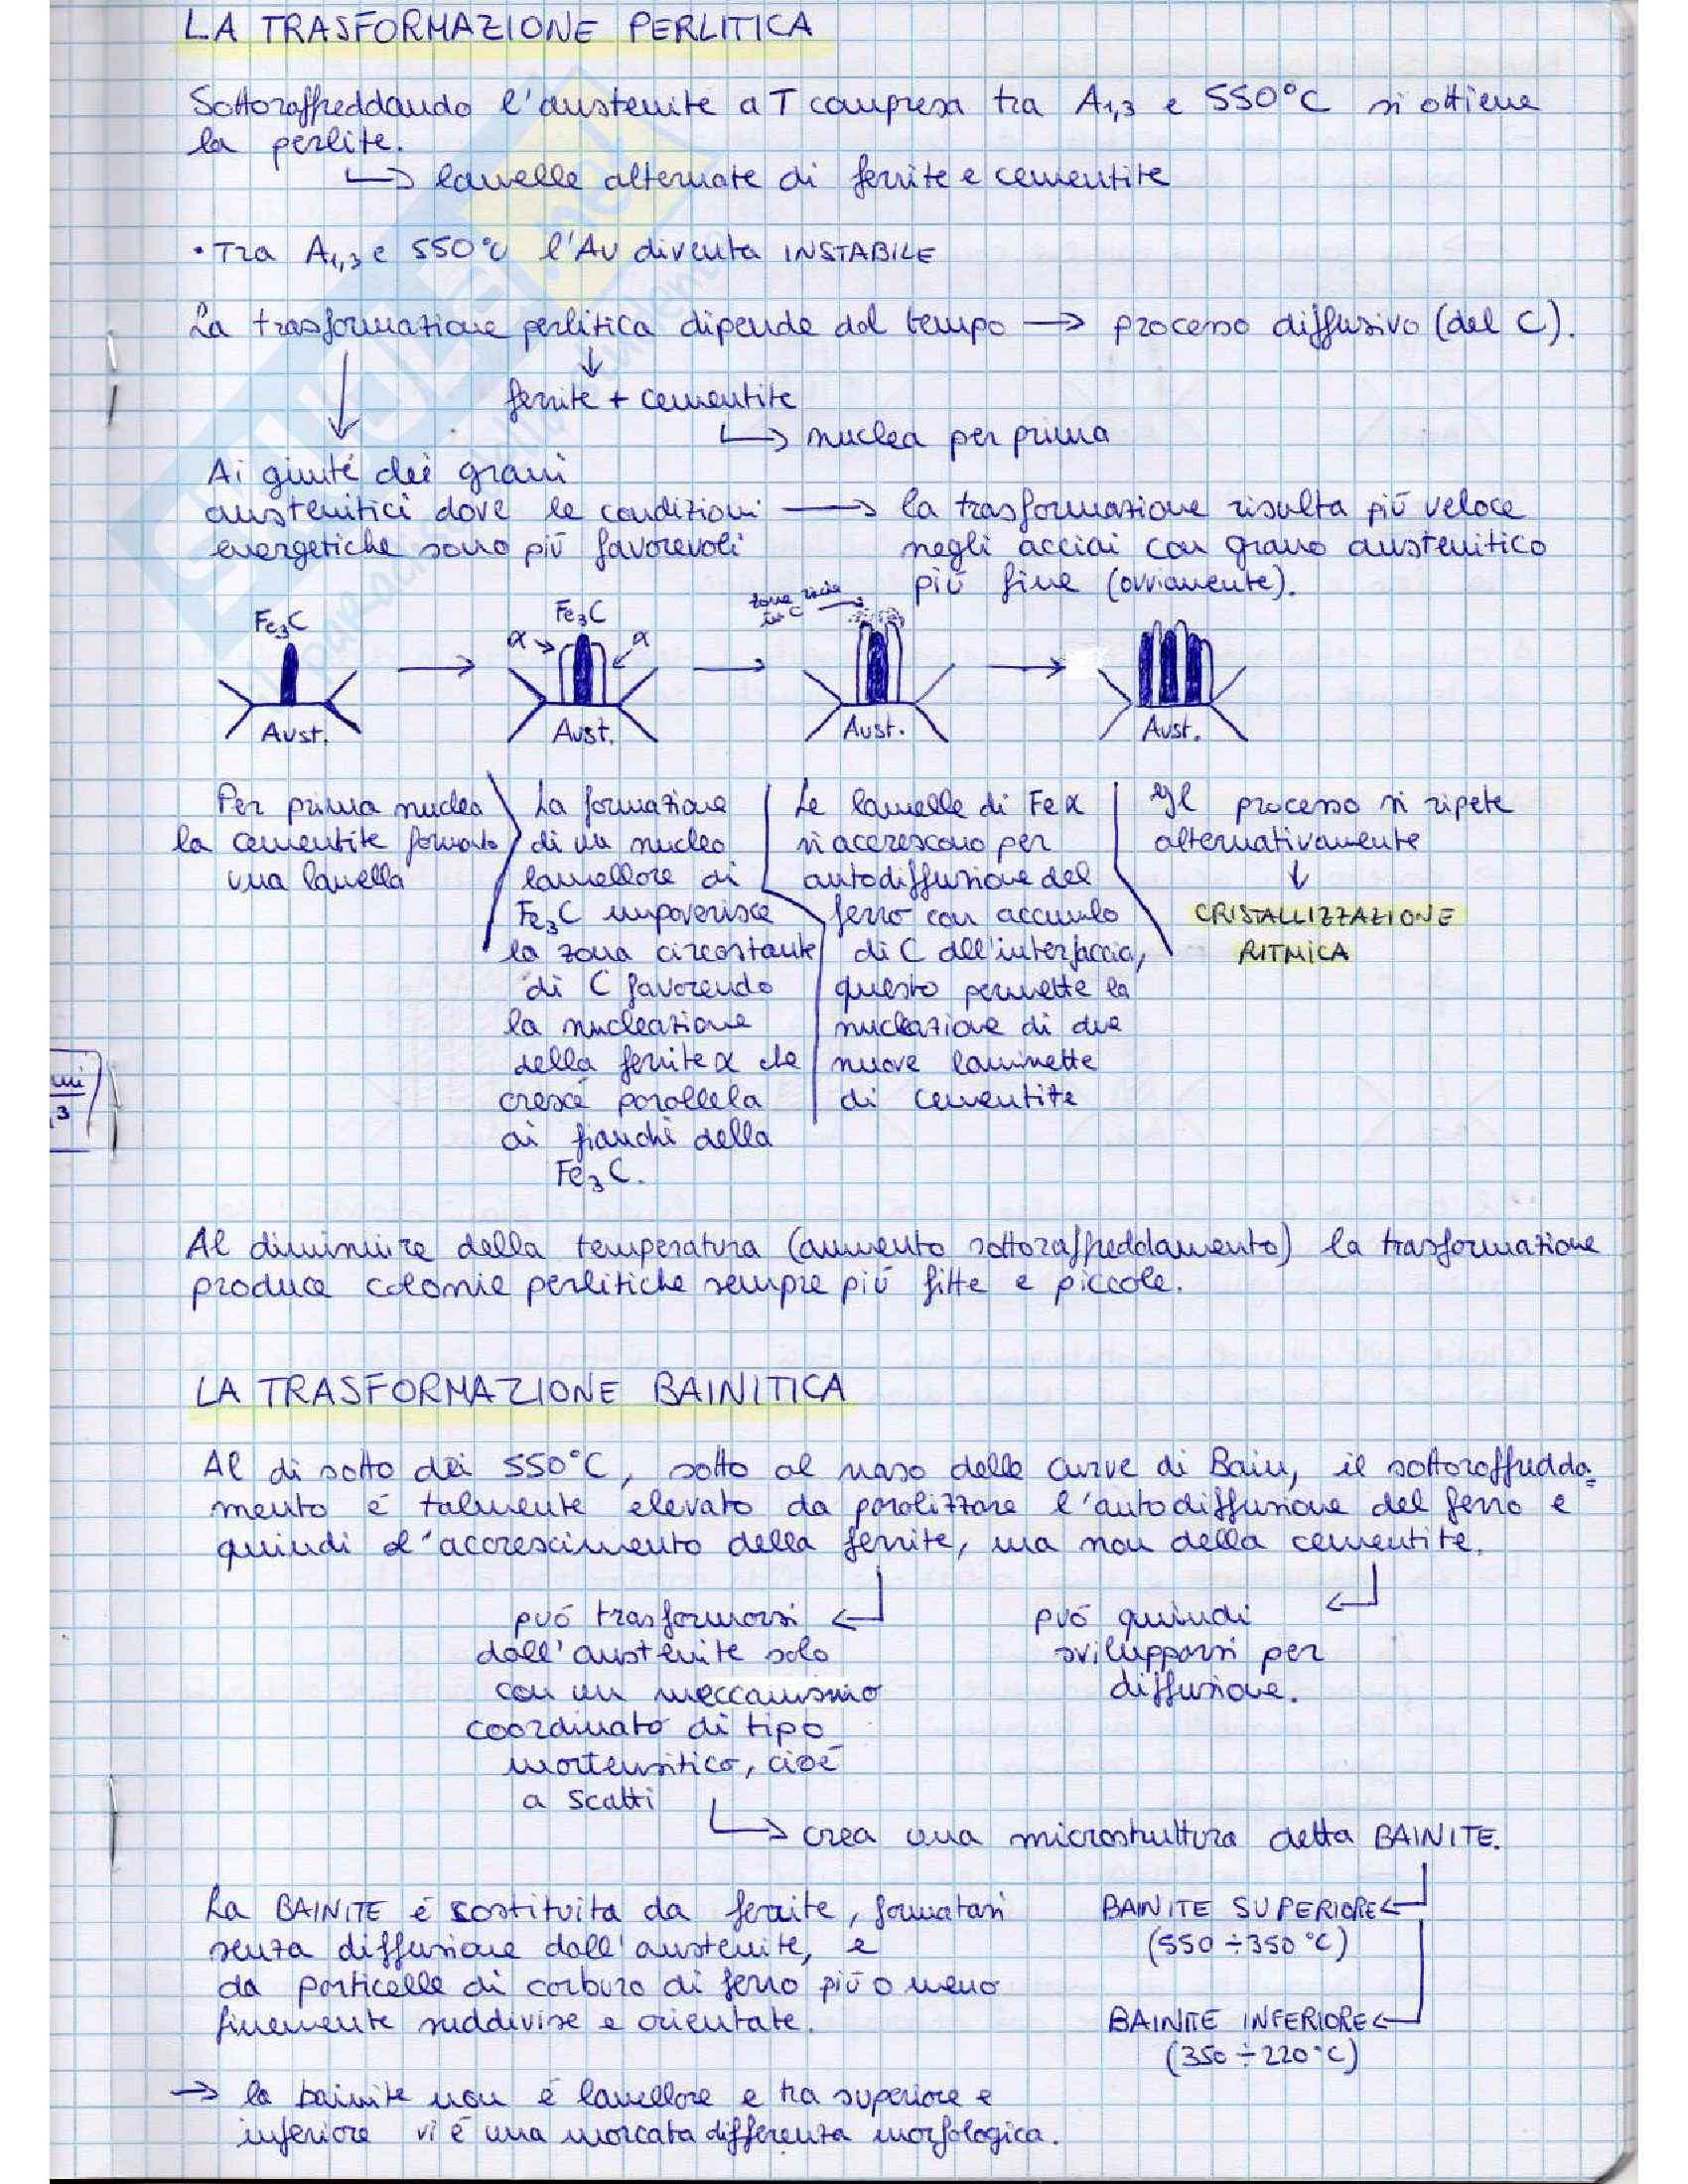 LA TRASFORMAZIONE PERLITICA
Sottoraffreddando l'austenite a T compresa tra A1,3 e 550°C si ottiene
la perlite.
↳ lamelle alternate di ferrite e cementite
• Tra A1,3 e 550°C l'Au diventa INSTABILE
La trasformazione perlitica dipende dal tempo → processo diffusivo (del C).
↓
ferrite + cementite
↳ nuclea per prima
Ai giunti dei grani
austenitici dove le condizioni → la trasformazione risulta più veloce
energetiche sono più favorevoli
negli acciai con grano austenitico
più fine (ovviamente).
Fe3C
Aust.
Fe3C
α
α
Aust.
zona ricca
in C
Aust.
Aust.
Per prima nuclea
la cementite formando
una lamella
La formazione
di un nucleo
lamellare di
Fe3C impoverisce
la zona circostante
di C favorendo
la nucleazione
della ferrite α che
cresce parallela
ai fianchi della
Fe3C.
Le lamelle di Fe α
si accrescono per
autodiffusione del
ferro con accumulo
di C all'interfaccia,
questo permette la
nucleazione di due
nuove laminette
di cementite
Il processo si ripete
alternativamente
↓
CRISTALLIZZAZIONE
RITMICA
mi
,3
Al diminuire della temperatura (aumento sottoraffreddamento) la trasformazione
produce colonie perlitiche sempre più fitte e piccole.
LA TRASFORMAZIONE BAINITICA
Al di sotto dei 550°C, sotto al naso delle curve di Bain, il sottoraffredda=
mento è talmente elevato da paralizzare l'autodiffusione del ferro e
quindi l'accrescimento della ferrite, ma non della cementite.
può trasformarsi
dall'austenite solo
con un meccanismo
coordinato di tipo
martensitico, cioè
a scatti
può quindi
svilupparsi per
diffusione.
↳ crea una microstruttura detta BAINITE.
La BAINITE è costituita da ferrite, formatasi
senza diffusione dall'austenite, e
da particelle di carburo di ferro più o meno
finemente suddivise e orientate.
BAINITE SUPERIORE
(550÷350°C)
BAINITE INFERIORE
(350÷220°C)
→ la bainite non è lamellare e tra superiore e
inferiore vi è una marcata differenza morfologica.